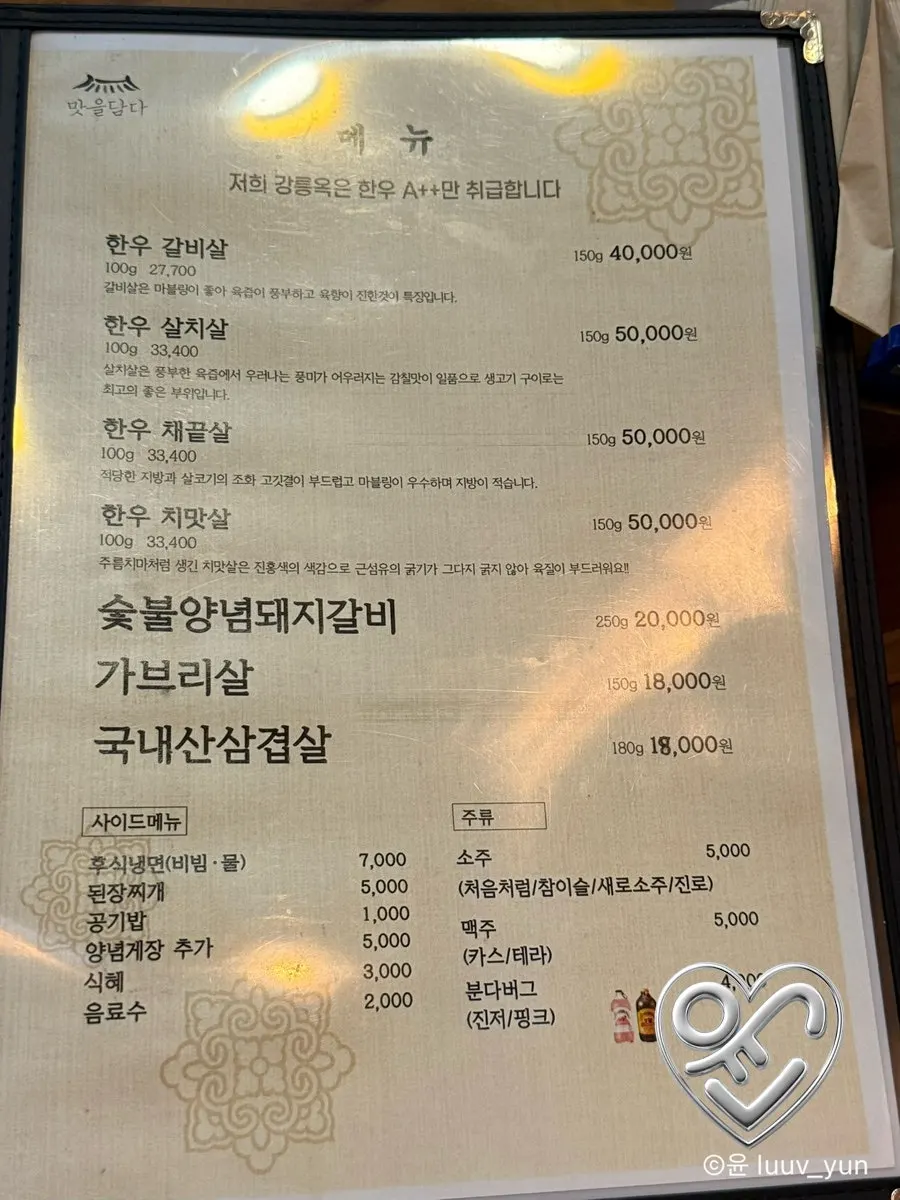 맛을담다
메 뉴
저희 강릉옥은 한우 A++만 취급합니다
한우 갈비살 150g 40,000원
100g 27,700
갈비살은 마블링이 좋아 육즙이 풍부하고 육향이 진한것이 특징입니다.
한우 살치살 150g 50,000원
100g 33,400
살치살은 풍부한 육즙에서 우러나는 풍미가 어우러지는 감칠맛이 일품으로 생고기 구이로는
최고의 좋은 부위입니다.
한우 채끝살 150g 50,000원
100g 33,400
적당한 지방과 살코기의 조화 고깃결이 부드럽고 마블링이 우수하며 지방이 적습니다.
한우 치맛살 150g 50,000원
100g 33,400
주름치마처럼 생긴 치맛살은 진홍색의 색감으로 근섬유의 굵기가 그다지 굵지 않아 육질이 부드러워요!!
숯불양념돼지갈비 250g 20,000원
가브리살 150g 18,000원
국내산삼겹살 180g
사이드메뉴
후식냉면(비빔·물) 7,000
된장찌개 5,000
공기밥 1,000
양념게장 추가 5,000
식혜 3,000
음료수 2,000
주류
소주 5,000
(처음처럼/참이슬/새로소주/진로)
맥주 5,000
(카스/테라)
분다버그
(진저/핑크)
윤
©윤 luuv_yun